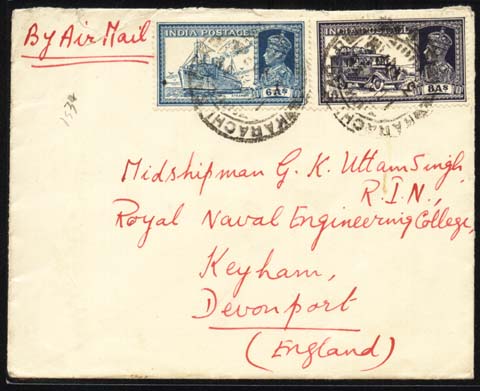 By Air Mail
INDIA POSTAGE INDIA POSTAGE
6As 8As
KARACHI KARACHI
Midshipman G. K. Uttam Singh,
R.I.N.,
Royal Naval Engineering College,
Keyham,
Devonport
(England)